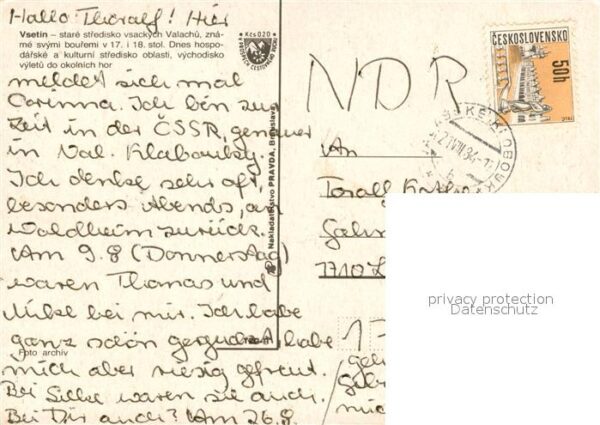 Hallo Thoralf! Hier
Vsetín – staré středisko vsackých Valachů, zná-
mé svými bouřemi v 17. i 18. stol. Dnes hospo-
dářské a kulturní středisko oblasti, východisko
výletů do okolních hor
Kčs 0.20
meldet sich mal
Corinna. Ich bin zur
Zeit in der ČSSR, genauer
in Val. Klobouky.
Ich denke sehr oft,
besonders Abends, an
Waldheim zurück.
Am 9.8 (Donnerstag)
waren Thomas und
Mike bei mir. Ich habe
ganz schön geguckt, habe
Foto archív
mich aber riesig gefreut.
Bei Silke waren sie auch.
Bei Dir auch? Am 26.8.
Nakladatelstvo PRAVDA, Bratislava
ČESKOSLOVENSKO
50h
NDR
An
Toralf
7710
privacy protection
Datenschutz